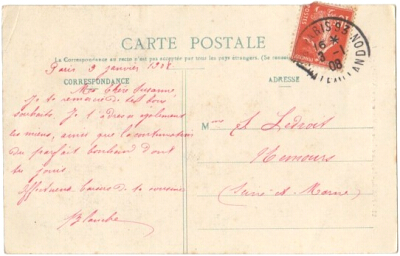 CARTE POSTALE
La Correspondance au recto n'est pas acceptée par tous les pays étrangers. (Se renseigner
Paris 2 janvier 1908
CORRESPONDANCE
ADRESSE
Ma chère Suzanne
Je te remercie de tes bons
souhaits. Je t'adresse également
les miens, ainsi que la continuation
du parfait bonheur dont
tu jouis.
Affectueux baisers de ta cousine
Blanche
Mme J. Ledroit
Nemours
(Seine et Marne)
PARIS
08